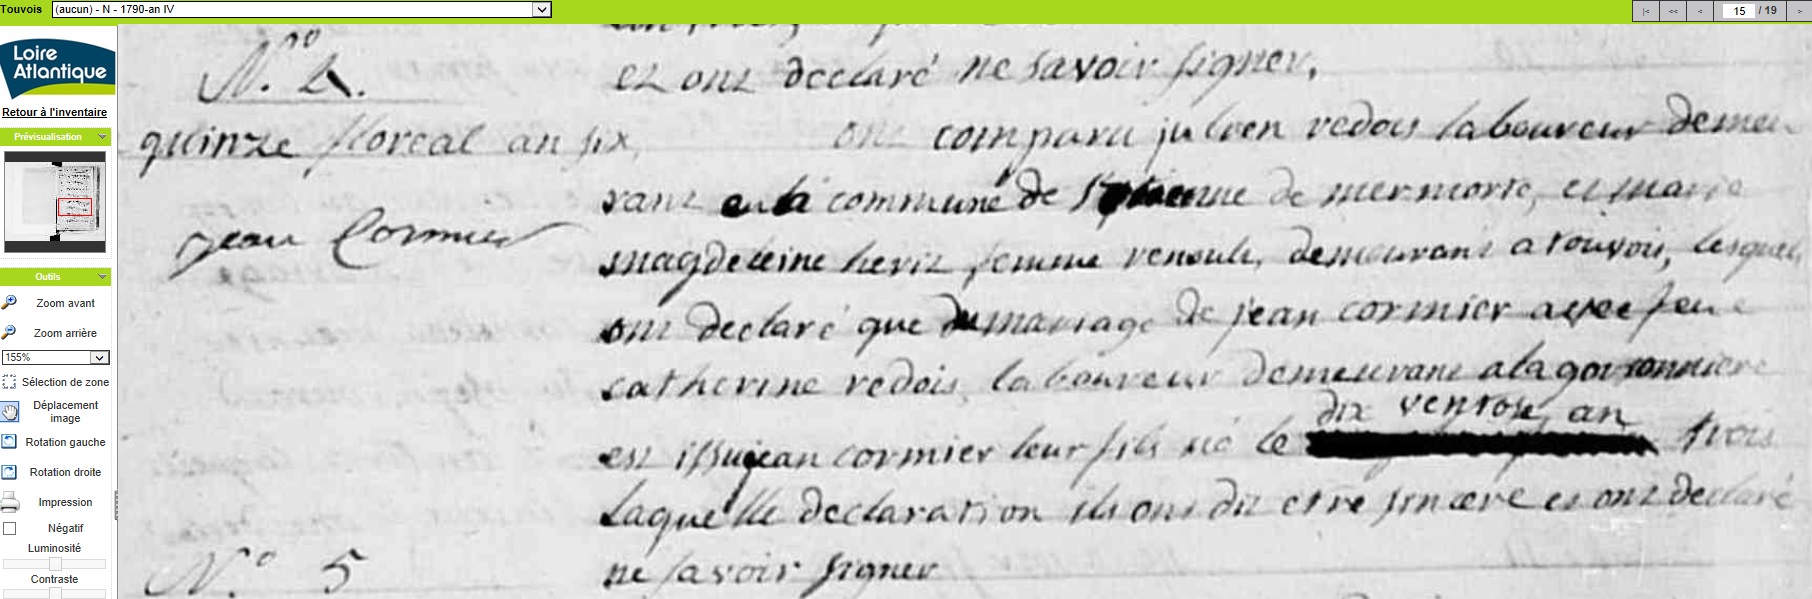 Touvois
(aucun) - N - 1790-an IV
|<
<<
<
15
/ 19
>
Loire
Atlantique
Retour à l'inventaire
Prévisualisation
Outils
Zoom avant
Zoom arrière
155%
Sélection de zone
Déplacement
image
Rotation gauche
Rotation droite
Impression
Négatif
Luminosité
Contraste
et ont declaré ne savoir signer,
N.° 4.
quinze floreal an six,
jean Cormier
ont comparu julien redois laboureur demeu
rant en la commune de de mermorte, et marie
magdeleine heriz femme renoult, demeurant a touvois, lesquels
ont declaré que du mariage de jean cormier avec feue
catherine redois, laboureur demeurant a la
est issu jean cormier leur fils né le dix ventose an trois
laquelle declaration ils ont dit etre sincere et ont declaré
ne savoir signer
N.° 5